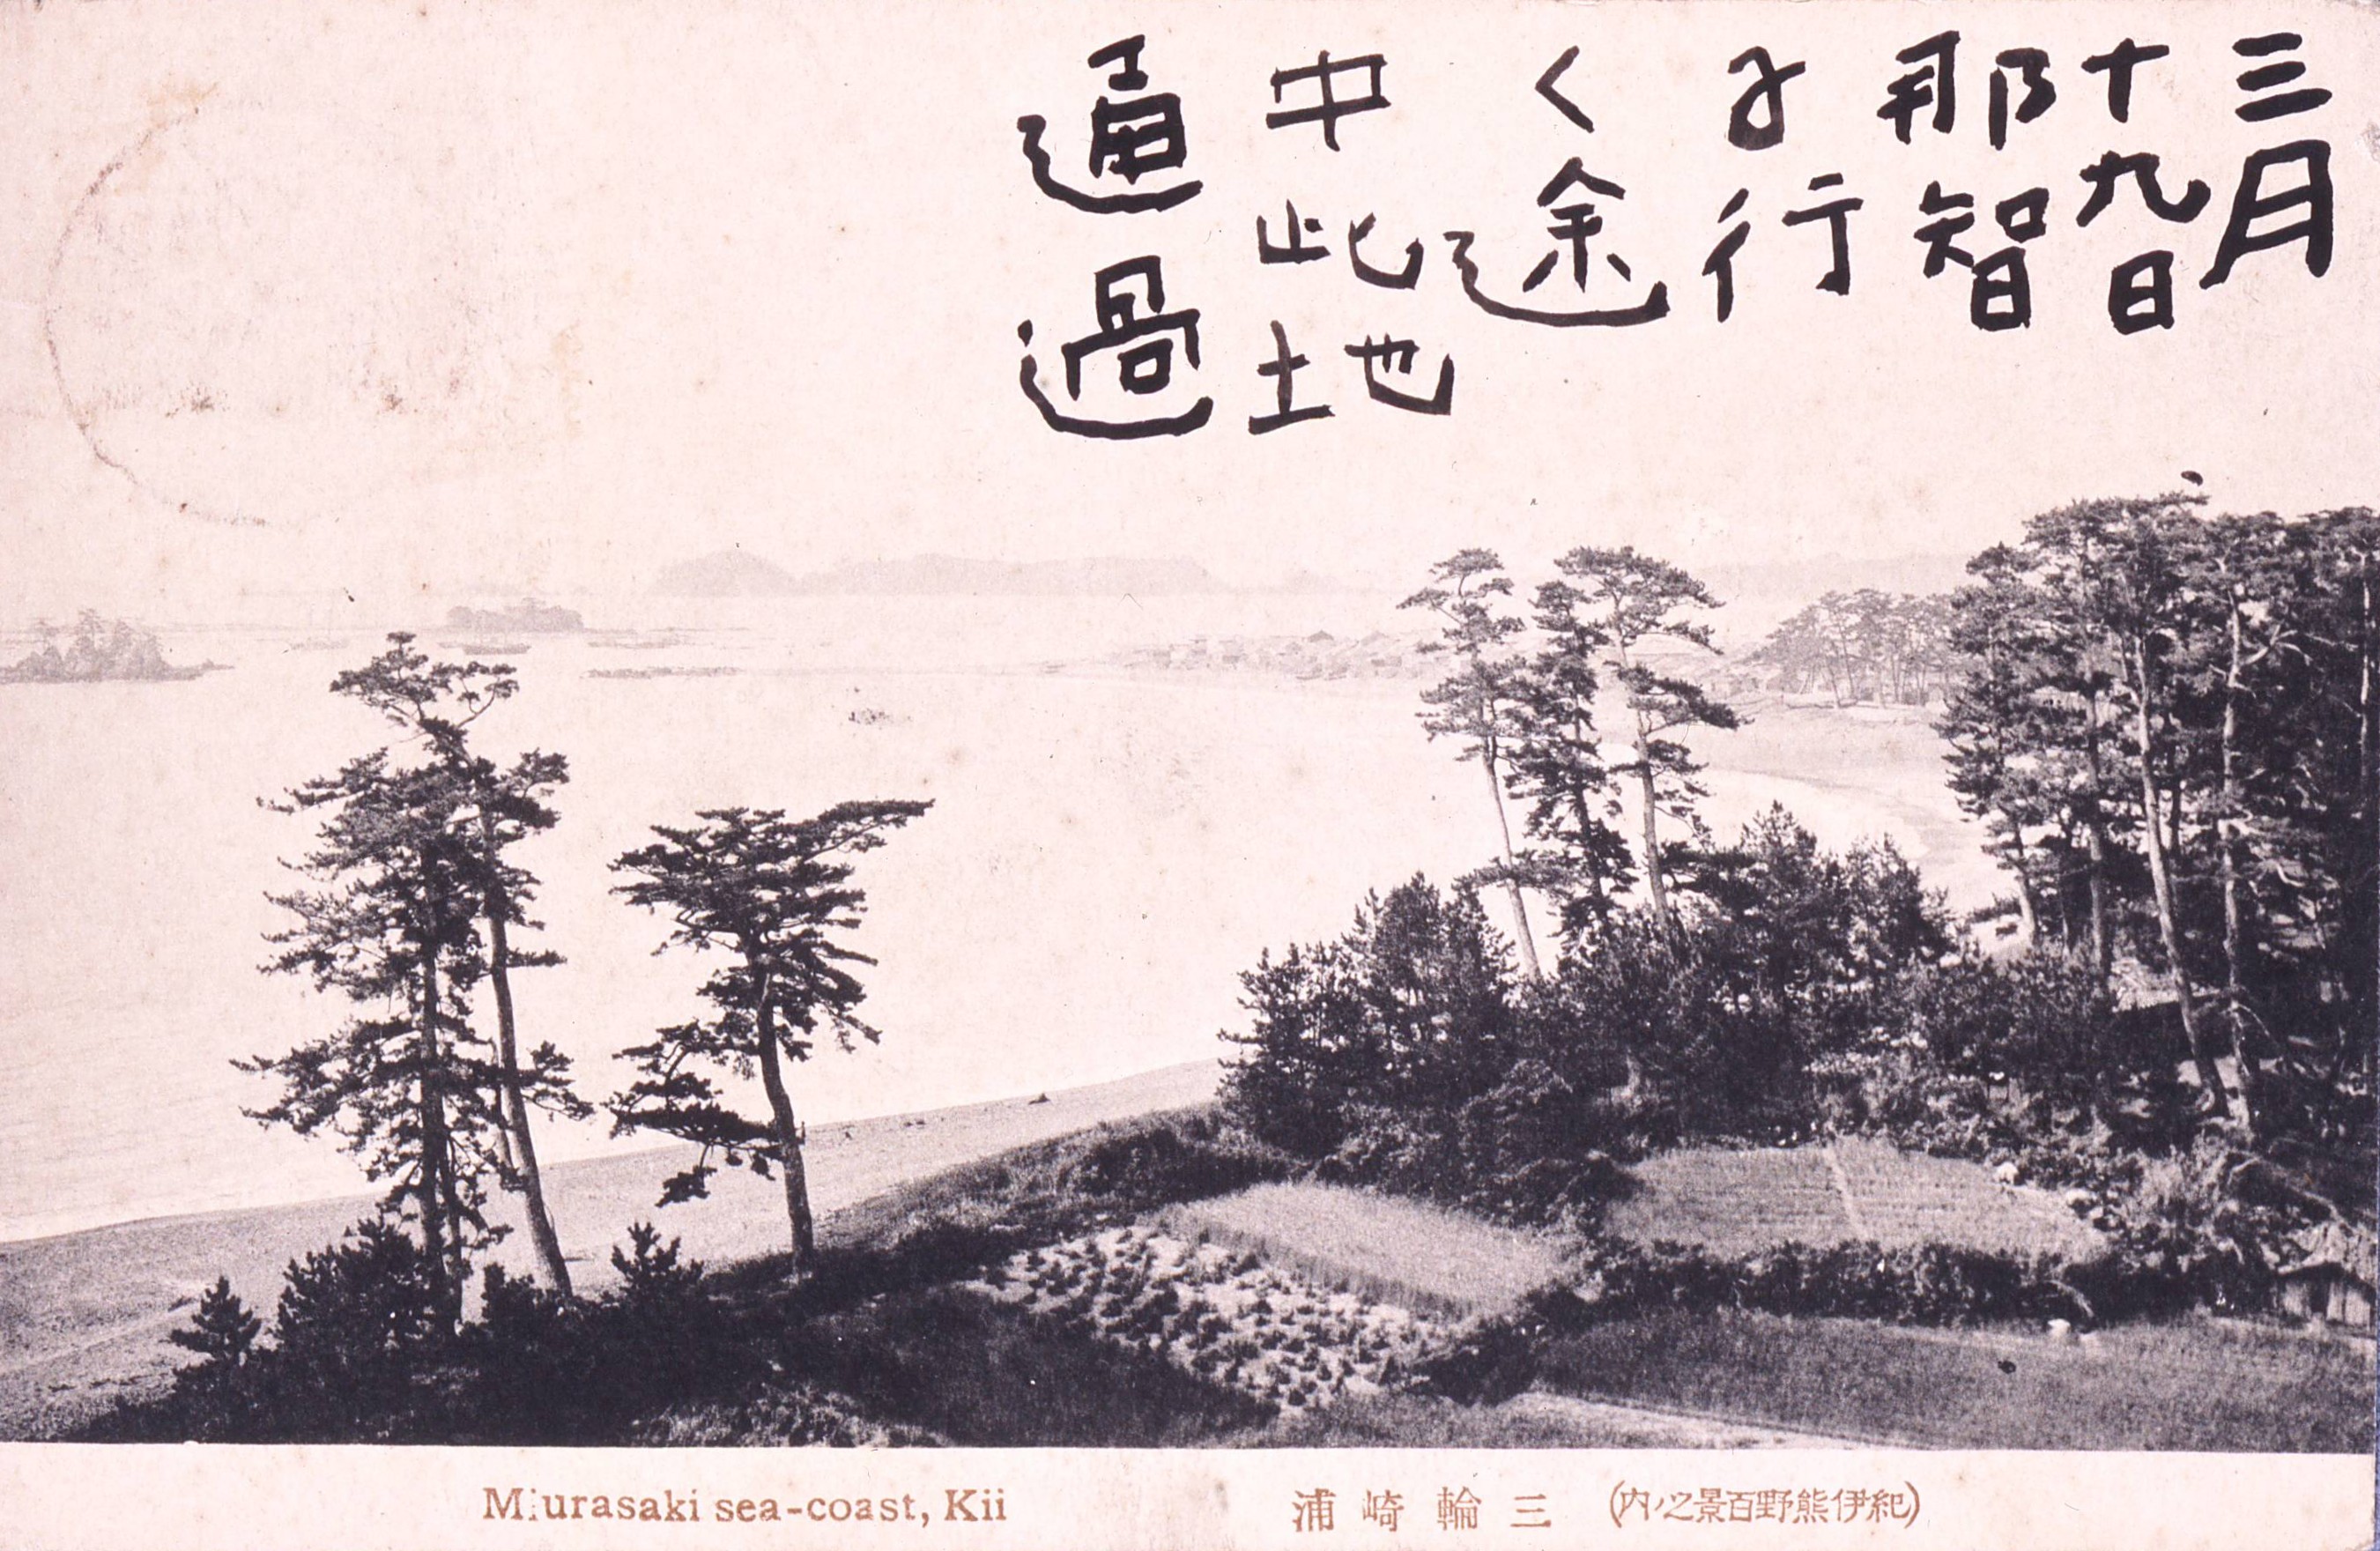 三月
十九日
那智
に行
く途
中此地
通過
Miurasaki sea-coast, Kii
浦崎輪三
(内ノ之景百野熊伊紀)